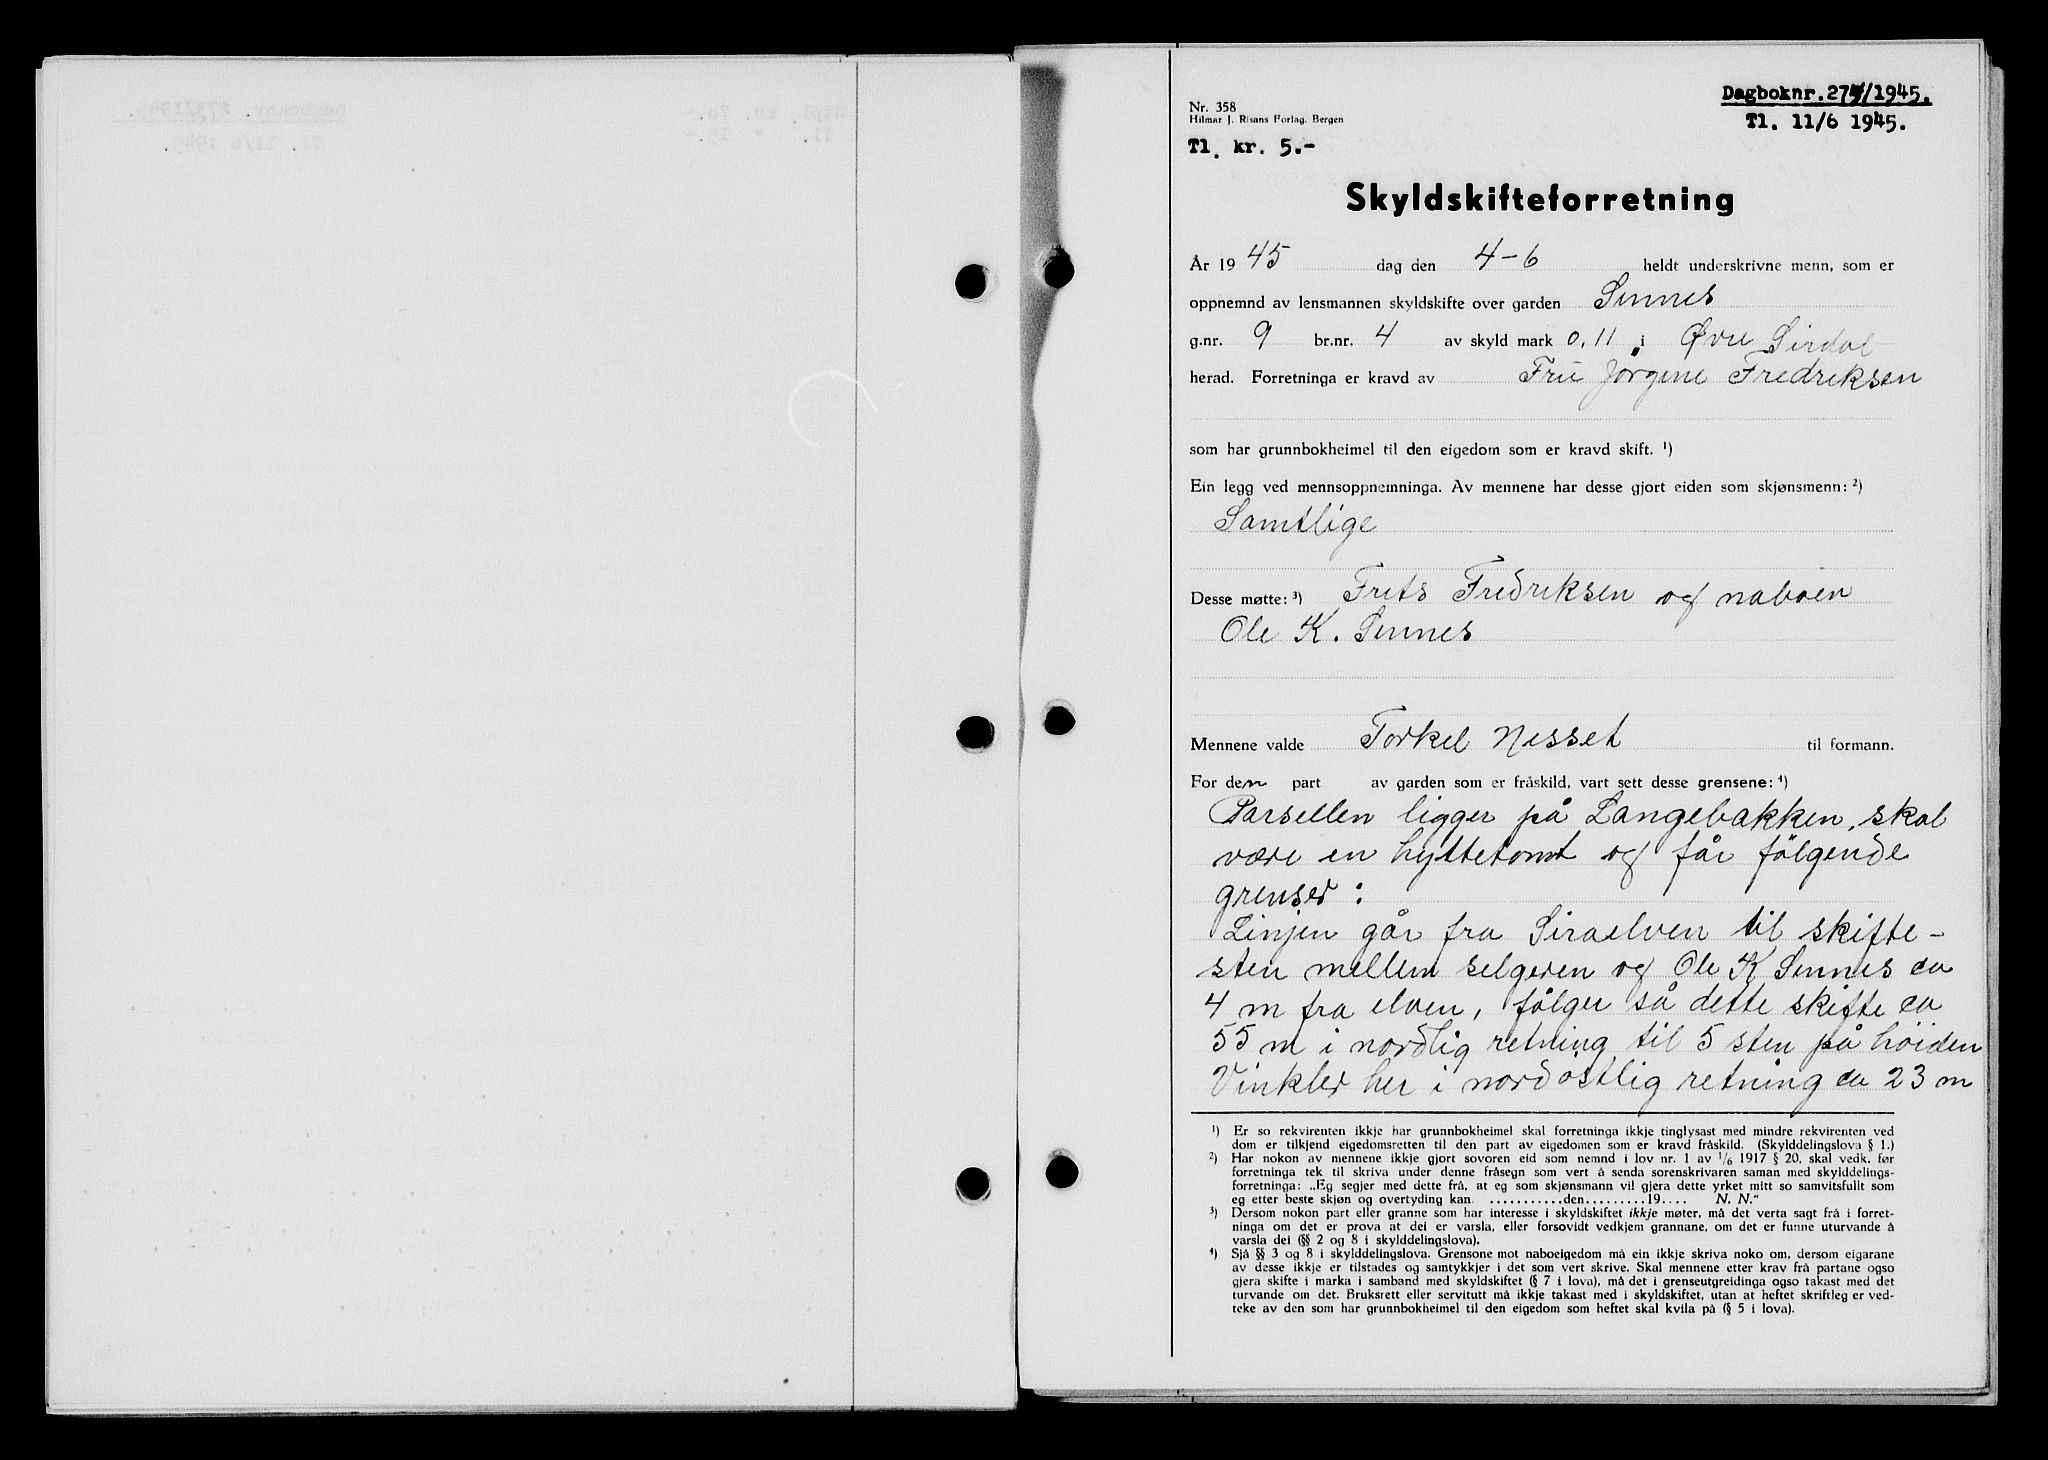 Dagboknr. 274/1945.
Tl. 11/6 1945.
Nr. 358
Hilmar J. Risans Forlag. Bergen
Tl. kr. 5.-
Skyldskifteforretning
År 1945 dag den 4-6 heldt underskrivne menn, som er
oppnemnd av lensmannen skyldskifte over garden Sinnes
g.nr. 9 br.nr. 4 av skyld mark 0,11 i Øvre Sirdal
herad. Forretninga er kravd av Fru Jørgine Fredriksen
som har grunnbokheimel til den eigedom som er kravd skift. ¹)
Ein legg ved mennsoppnemninga. Av mennene har desse gjort eiden som skjønsmenn: ²)
Samtlige
Desse møtte: ³) Frits Fredriksen og naboen
Ole K. Sinnes
Mennene valde Torkel Nesset til formann.
For den part av garden som er fråskild, vart sett desse grensene: ⁴)
Parsellen ligger på Langebakken, skal
være en hyttetomt og får følgende
grenser:
Linjen går fra Siraelven til skifte-
sten mellem selgeren og Ole K Sinnes ca
4 m fra elven, følger så dette skifte ca
55 m i nordlig retning til 5 sten på høiden
Vinkler her i nordøstlig retning ca 23 m
¹) Er so rekvirenten ikkje har grunnbokheimel skal forretninga ikkje tinglysast med mindre rekvirenten ved
dom er tilkjend eigedomsretten til den part av eigedomen som er kravd fråskild. (Skylddelingslova § 1.)
²) Har nokon av mennene ikkje gjort sovoren eid som nemnd i lov nr. 1 av 1/6 1917 § 20, skal vedk. før
forretninga tek til skriva under denne fråsegn som vert å senda sorenskrivaren saman med skylddelings-
forretninga: „Eg segjer med dette frå, at eg som skjønsmann vil gjera dette yrket mitt so samvitsfullt som
eg etter beste skjøn og overtyding kan ...........den.........19.... N. N."
³) Dersom nokon part eller granne som har interesse i skyldskiftet ikkje møter, må det verta sagt frå i forret-
ninga om det er prova at dei er varsla, eller forsovidt vedkjem grannane, om det er funne uturvande å
varsla dei (§§ 2 og 8 i skylddelingslova).
⁴) Sjå §§ 3 og 8 i skylddelingslova. Grensone mot naboeigedom må ein ikkje skriva noko om, dersom eigarane
av desse ikkje er tilstades og samtykkjer i det som vert skrive. Skal mennene etter krav frå partane ogso
gjera skifte i marka i samband med skyldskiftet (§ 7 i lova), må det i grenseutgreidinga ogso takast med det
turvande om det. Bruksrett eller servitutt må ikkje takast med i skyldskiftet, utan at heftet skriftleg er ved-
teke av den som har grunnbokheimel til den eigedom som heftet skal kvila på (§ 5 i lova).